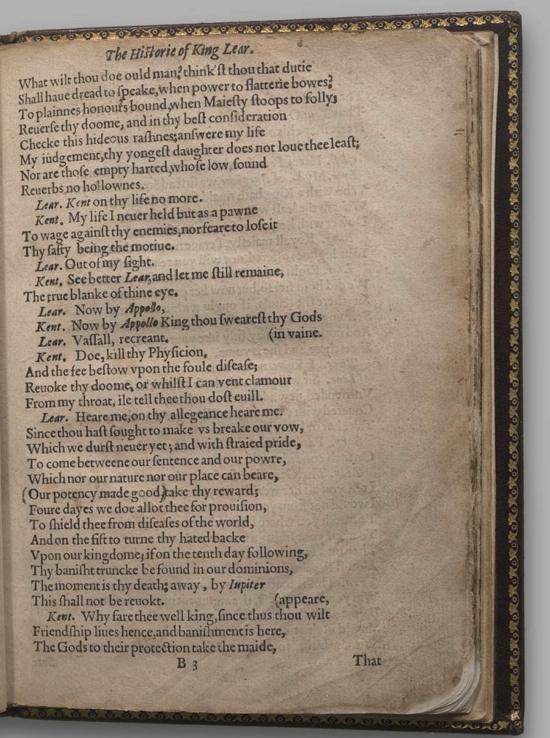 The Historie of King Lear.
What wilt thou doe ould man? think'ſt thou that dutie
Shall haue dread to ſpeake, when power to flatterie bowes?
To plainnes honours bound, when Maieſty ſtoops to folly,
Reuerſe thy doome, and in thy beſt conſideration
Checke this hideous raſhnes; anſwere my life
My iudgement, thy yongeſt daughter does not loue thee leaſt;
Nor are thoſe empty harted, whoſe low, ſound
Reuerbs no hollownes.
Lear. Kent on thy life no more.
Kent. My life I neuer held but as a pawne
To wage againſt thy enemies, nor feare to loſe it
Thy ſafty being the motiue.
Lear. Out of my ſight.
Kent. See better Lear, and let me ſtill remaine,
The true blanke of thine eye.
Lear. Now by Appollo,
Kent. Now by Appollo King thou ſweareſt thy Gods
Lear. Vaſſall, recreant. (in vaine.
Kent. Doe, kill thy Phyſicion,
And the fee beſtow vpon the foule diſeaſe;
Reuoke thy doome, or whilſt I can vent clamour
From my throat, ile tell thee thou doſt euill.
Lear. Heare me, on thy allegeance heare me.
Since thou haſt ſought to make vs breake our vow,
Which we durſt neuer yet; and with ſtraied pride,
To come betweene our ſentence and our powre,
Which nor our nature nor our place can beare,
(Our potency made good) take thy reward;
Foure dayes we doe allot thee for prouiſion,
To ſhield thee from diſeaſes of the world,
And on the fift to turne thy hated backe
Vpon our kingdome; if on the tenth day following,
Thy baniſht truncke be found in our dominions,
The moment is thy death; away, by Iupiter
This ſhall not be reuokt. (appeare,
Kent. Why fare thee well king, ſince thus thou wilt
Friendſhip liues hence, and baniſhment is here,
The Gods to their protection take the maide,
B 3 That